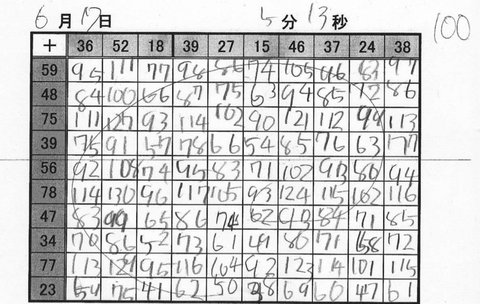 6月17日 5分13秒 100
+ 36 52 18 39 27 15 46 37 24 38
59 95 111 77 98 86 74 105 96 83 97
48 84 100 66 87 75 63 94 85 72 86
75 111 127 93 114 102 90 121 112 99 113
39 75 91 57 78 66 54 85 76 63 77
56 92 108 74 95 83 71 102 93 80 94
78 114 130 96 117 105 93 124 115 102 116
47 83 99 65 86 74 62 93 84 71 85
34 70 86 52 73 61 49 80 71 58 72
77 113 129 95 116 104 92 123 114 101 115
23 59 75 41 62 50 38 69 60 47 61